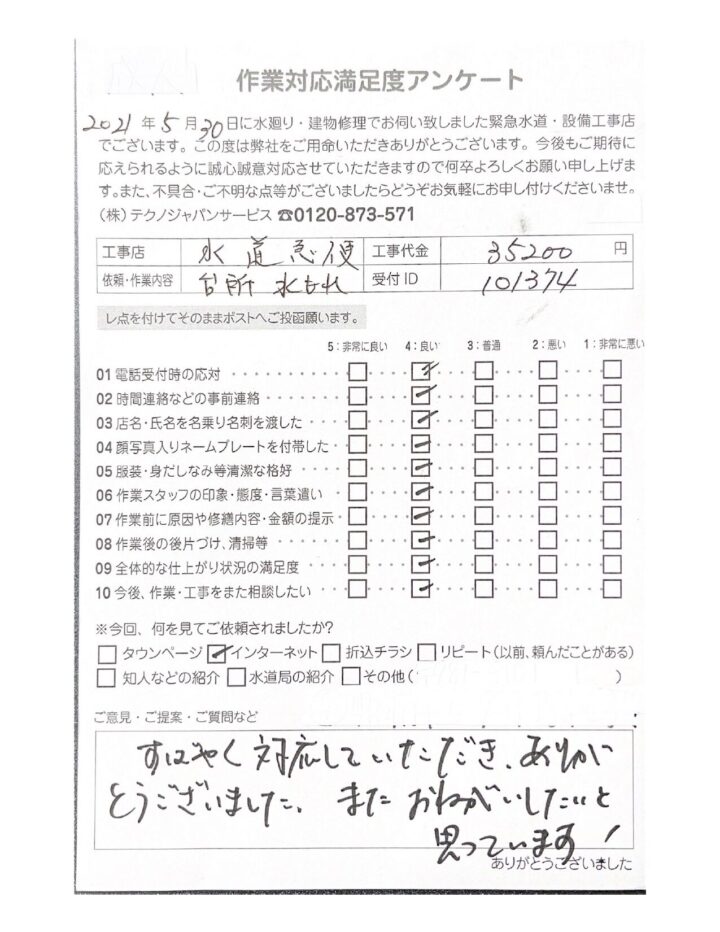 作業対応満足度アンケート
2021年5月30日に水廻り・建物修理でお伺い致しました緊急水道・設備工事店
でございます。この度は弊社をご用命いただきありがとうございます。今後もご期待に
応えられるように誠心誠意対応させていただきますので何卒よろしくお願い申し上げま
す。また、不具合・ご不明な点等がございましたらどうぞお気軽にお申し付けくださいませ。
（株）テクノジャパンサービス ☎0120-873-571
工事店 水道急便 工事代金 35200 円
依頼・作業内容 台所 水もれ 受付ID 101374
レ点を付けてそのままポストへご投函願います。
5：非常に良い 4：良い 3：普通 2：悪い 1：非常に悪い
01 電話受付時の応対
02 時間連絡などの事前連絡
03 店名・氏名を名乗り名刺を渡した
04 顔写真入りネームプレートを付帯した
05 服装・身だしなみ等清潔な格好
06 作業スタッフの印象・態度・言葉遣い
07 作業前に原因や修繕内容・金額の提示
08 作業後の後片づけ、清掃等
09 全体的な仕上がり状況の満足度
10 今後、作業・工事をまた相談したい
※今回、何を見てご依頼されましたか?
タウンページ インターネット 折込チラシ リピート（以前、頼んだことがある）
知人などの紹介 水道局の紹介 その他（ ）
ご意見・ご提案・ご質問など
すばやく対応していただき、ありが
とうございました。またおねがいしたいと
思っています！
ありがとうございました